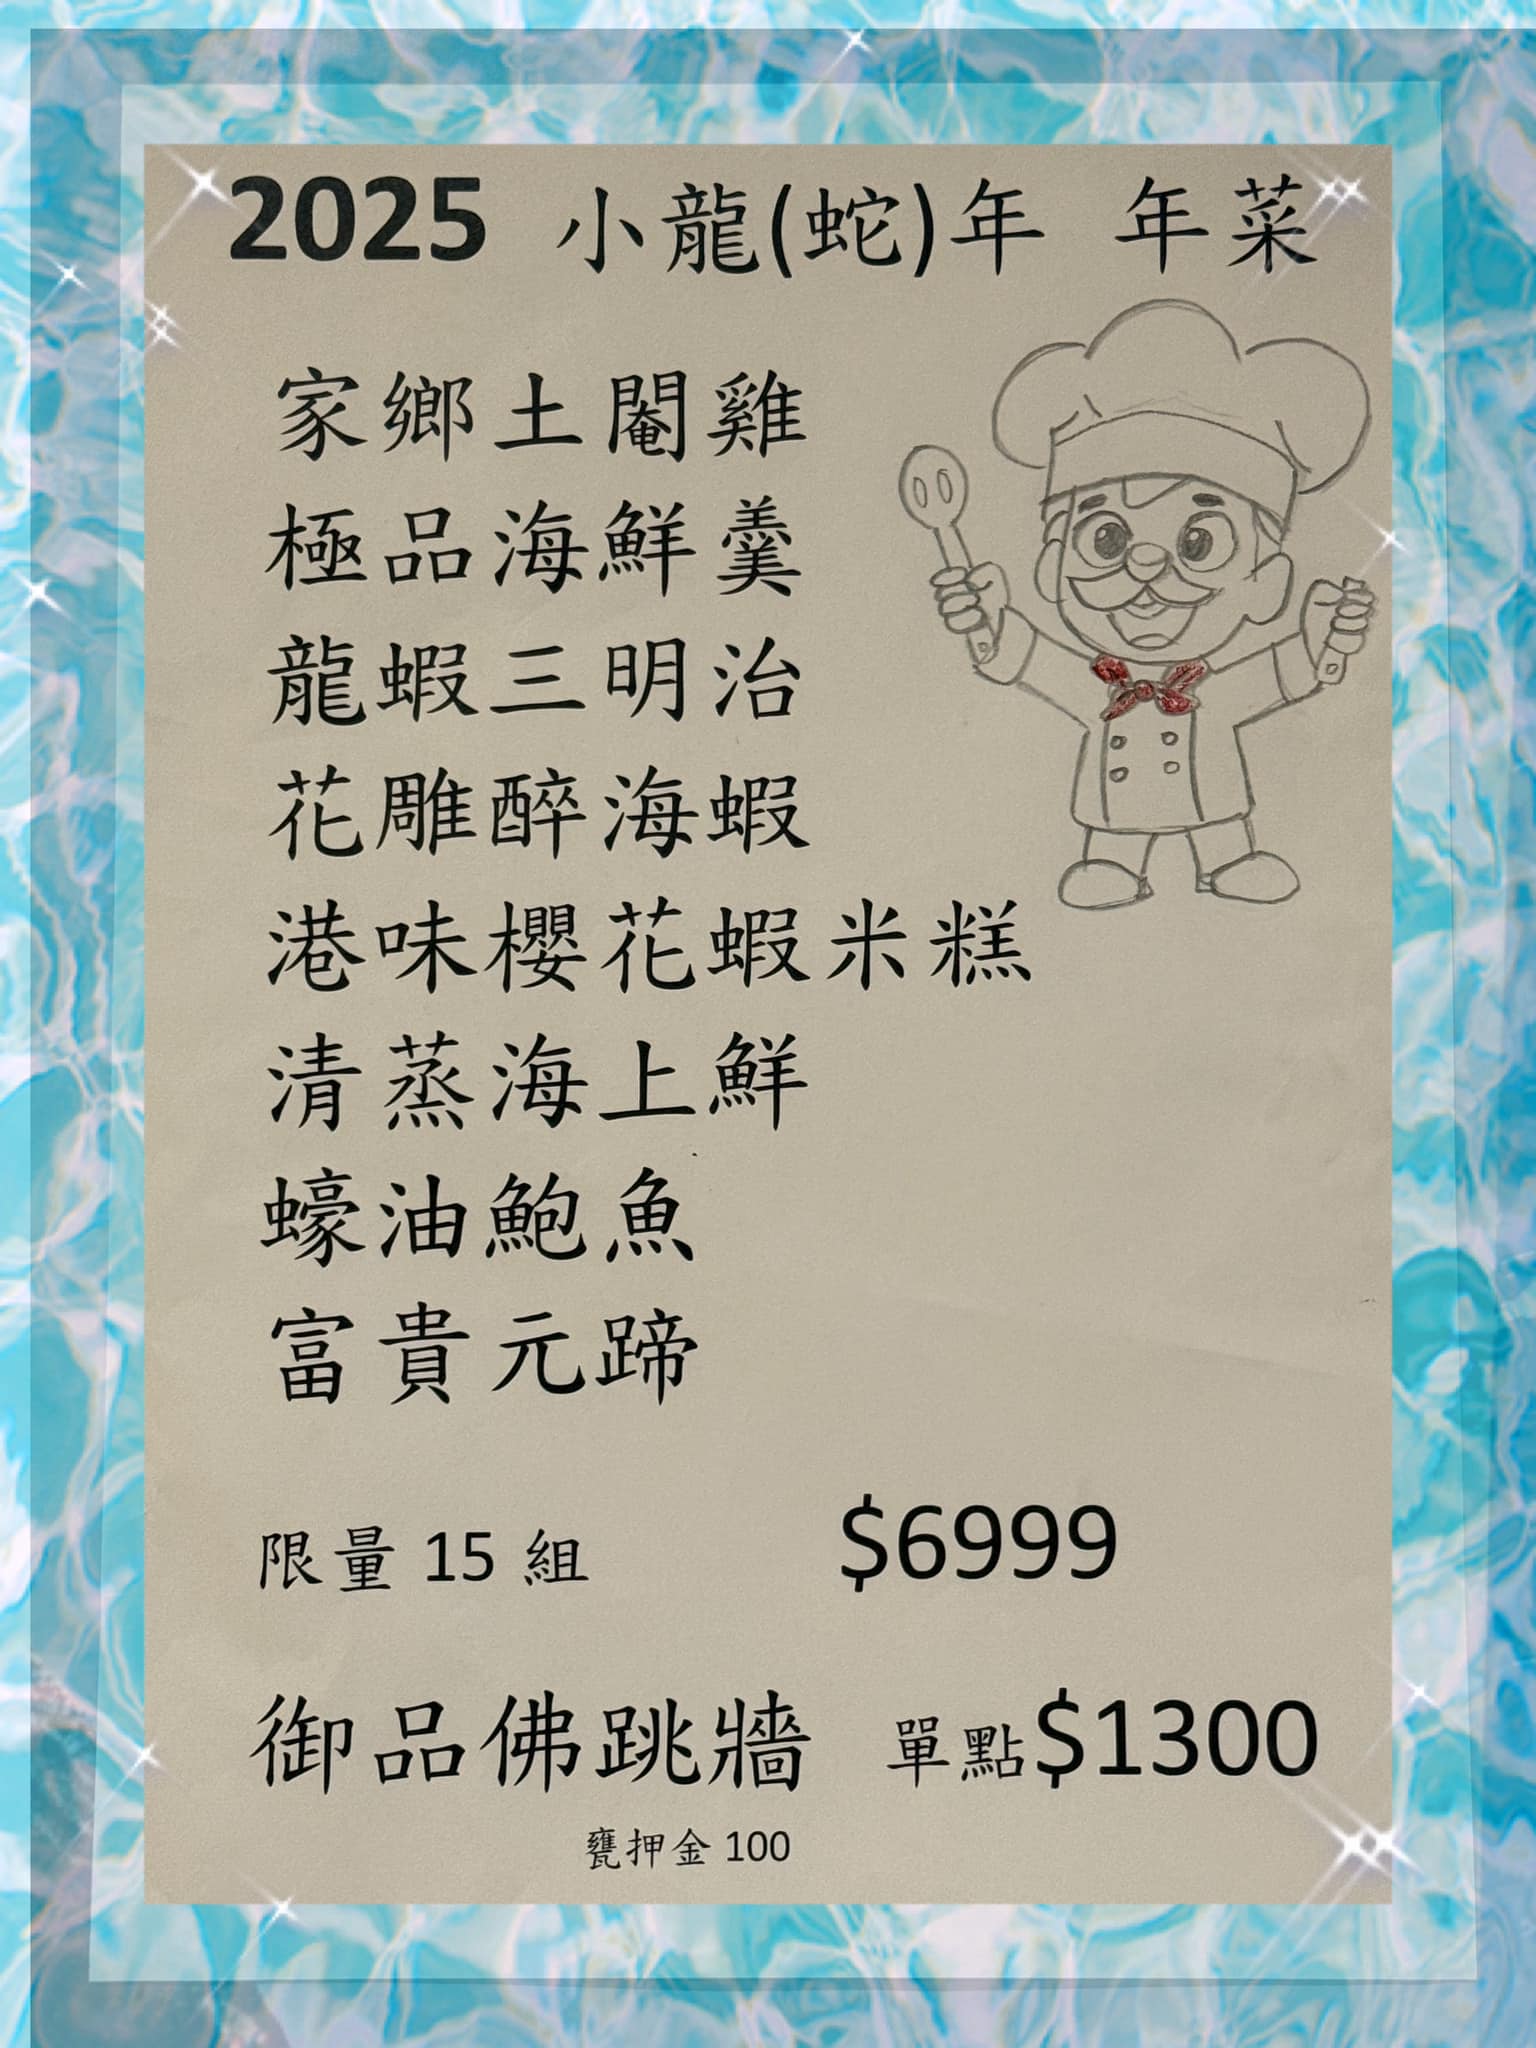 2025 小龍(蛇)年 年菜
家鄉土閹雞
極品海鮮羹
龍蝦三明治
花雕醉海蝦
港味櫻花蝦米糕
清蒸海上鮮
蠔油鮑魚
富貴元蹄
限量 15 組 $6999
御品佛跳牆 單點$1300
甕押金 100